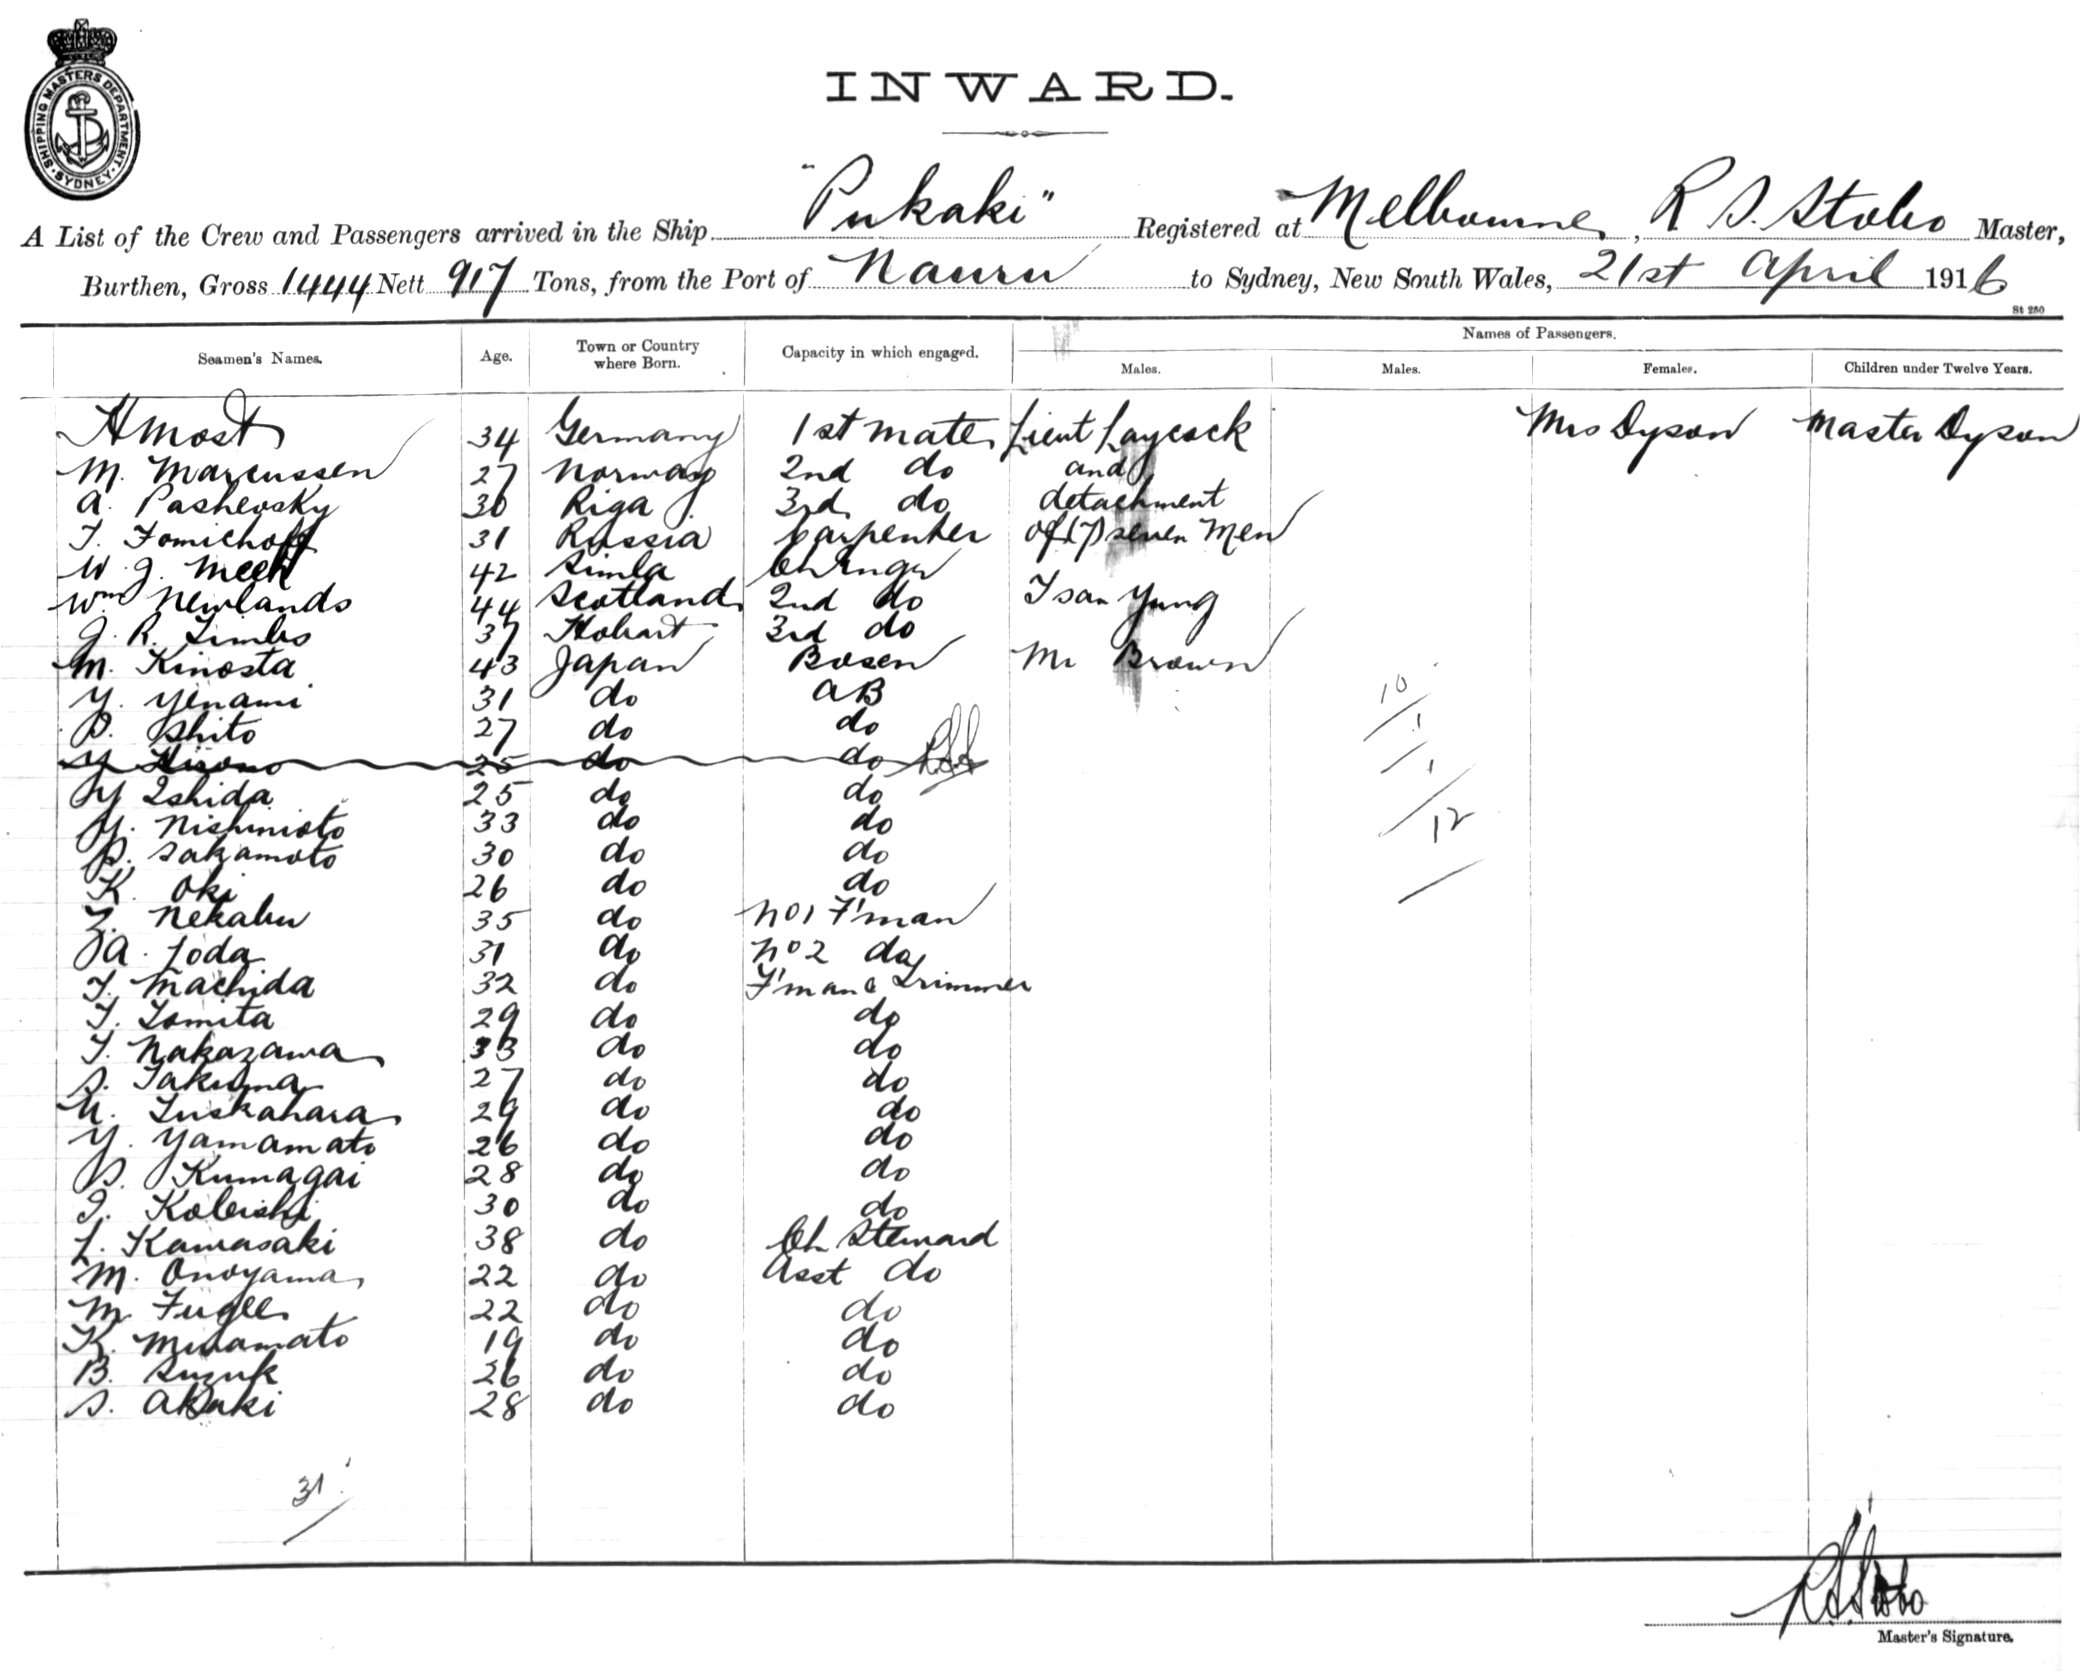 SHIPPING MASTERS DEPARTMENT
SYDNEY
INWARD.
A List of the Crew and Passengers arrived in the Ship "Pukaki" Registered at Melbourne, R S. Stobo Master,
Burthen, Gross 1444 Nett 917 Tons, from the Port of Nauru to Sydney, New South Wales, 21st April 1916
St 250
Seamen's Names. Age. Town or Country where Born. Capacity in which engaged. Names of Passengers.
Males. Males. Females. Children under Twelve Years.
H Most 34 Germany 1st mate Lieut Laycock Mrs Dyson Master Dyson
M. Marcussen 27 Norway 2nd do and
A. Pashevsky 30 Riga 3rd do detachment
T. Fomichoff 31 Russia Carpenter of (7) seven Men
W. J. Meek 42 Simla Ch Engr
Wm Newlands 44 Scotland 2nd do Tsan Yung
G. R. Timbs 37 Hobart 3rd do
M. Kinosta 43 Japan Bosen Mr Brown
Y. Yenami 31 do AB
S. Shito 27 do do
Y Hisono 25 do do RSS
Y Ishida 25 do do
Y. Nishimoto 33 do do
S. Sakamoto 30 do do
K. Oki 26 do do
Z. Nekabu 35 do No1 F'man
A. Toda 31 do No2 do
T. Machida 32 do F'man & Trimmer
T. Tomita 29 do do
T. Nakazawa 33 do do
S. Takuma 27 do do
U. Tuskahara 29 do do
Y. Yamamato 26 do do
S. Kumagai 28 do do
I. Kobeishi 30 do do
T. Kawasaki 38 do Ch Steward
M. Onoyama 22 do Asst do
M. Fugee 22 do do
K. Minamato 19 do do
B. Suzuk 26 do do
S. Akaki 28 do do
10
1
1
12
31
R.S. Stobo
Master's Signature.